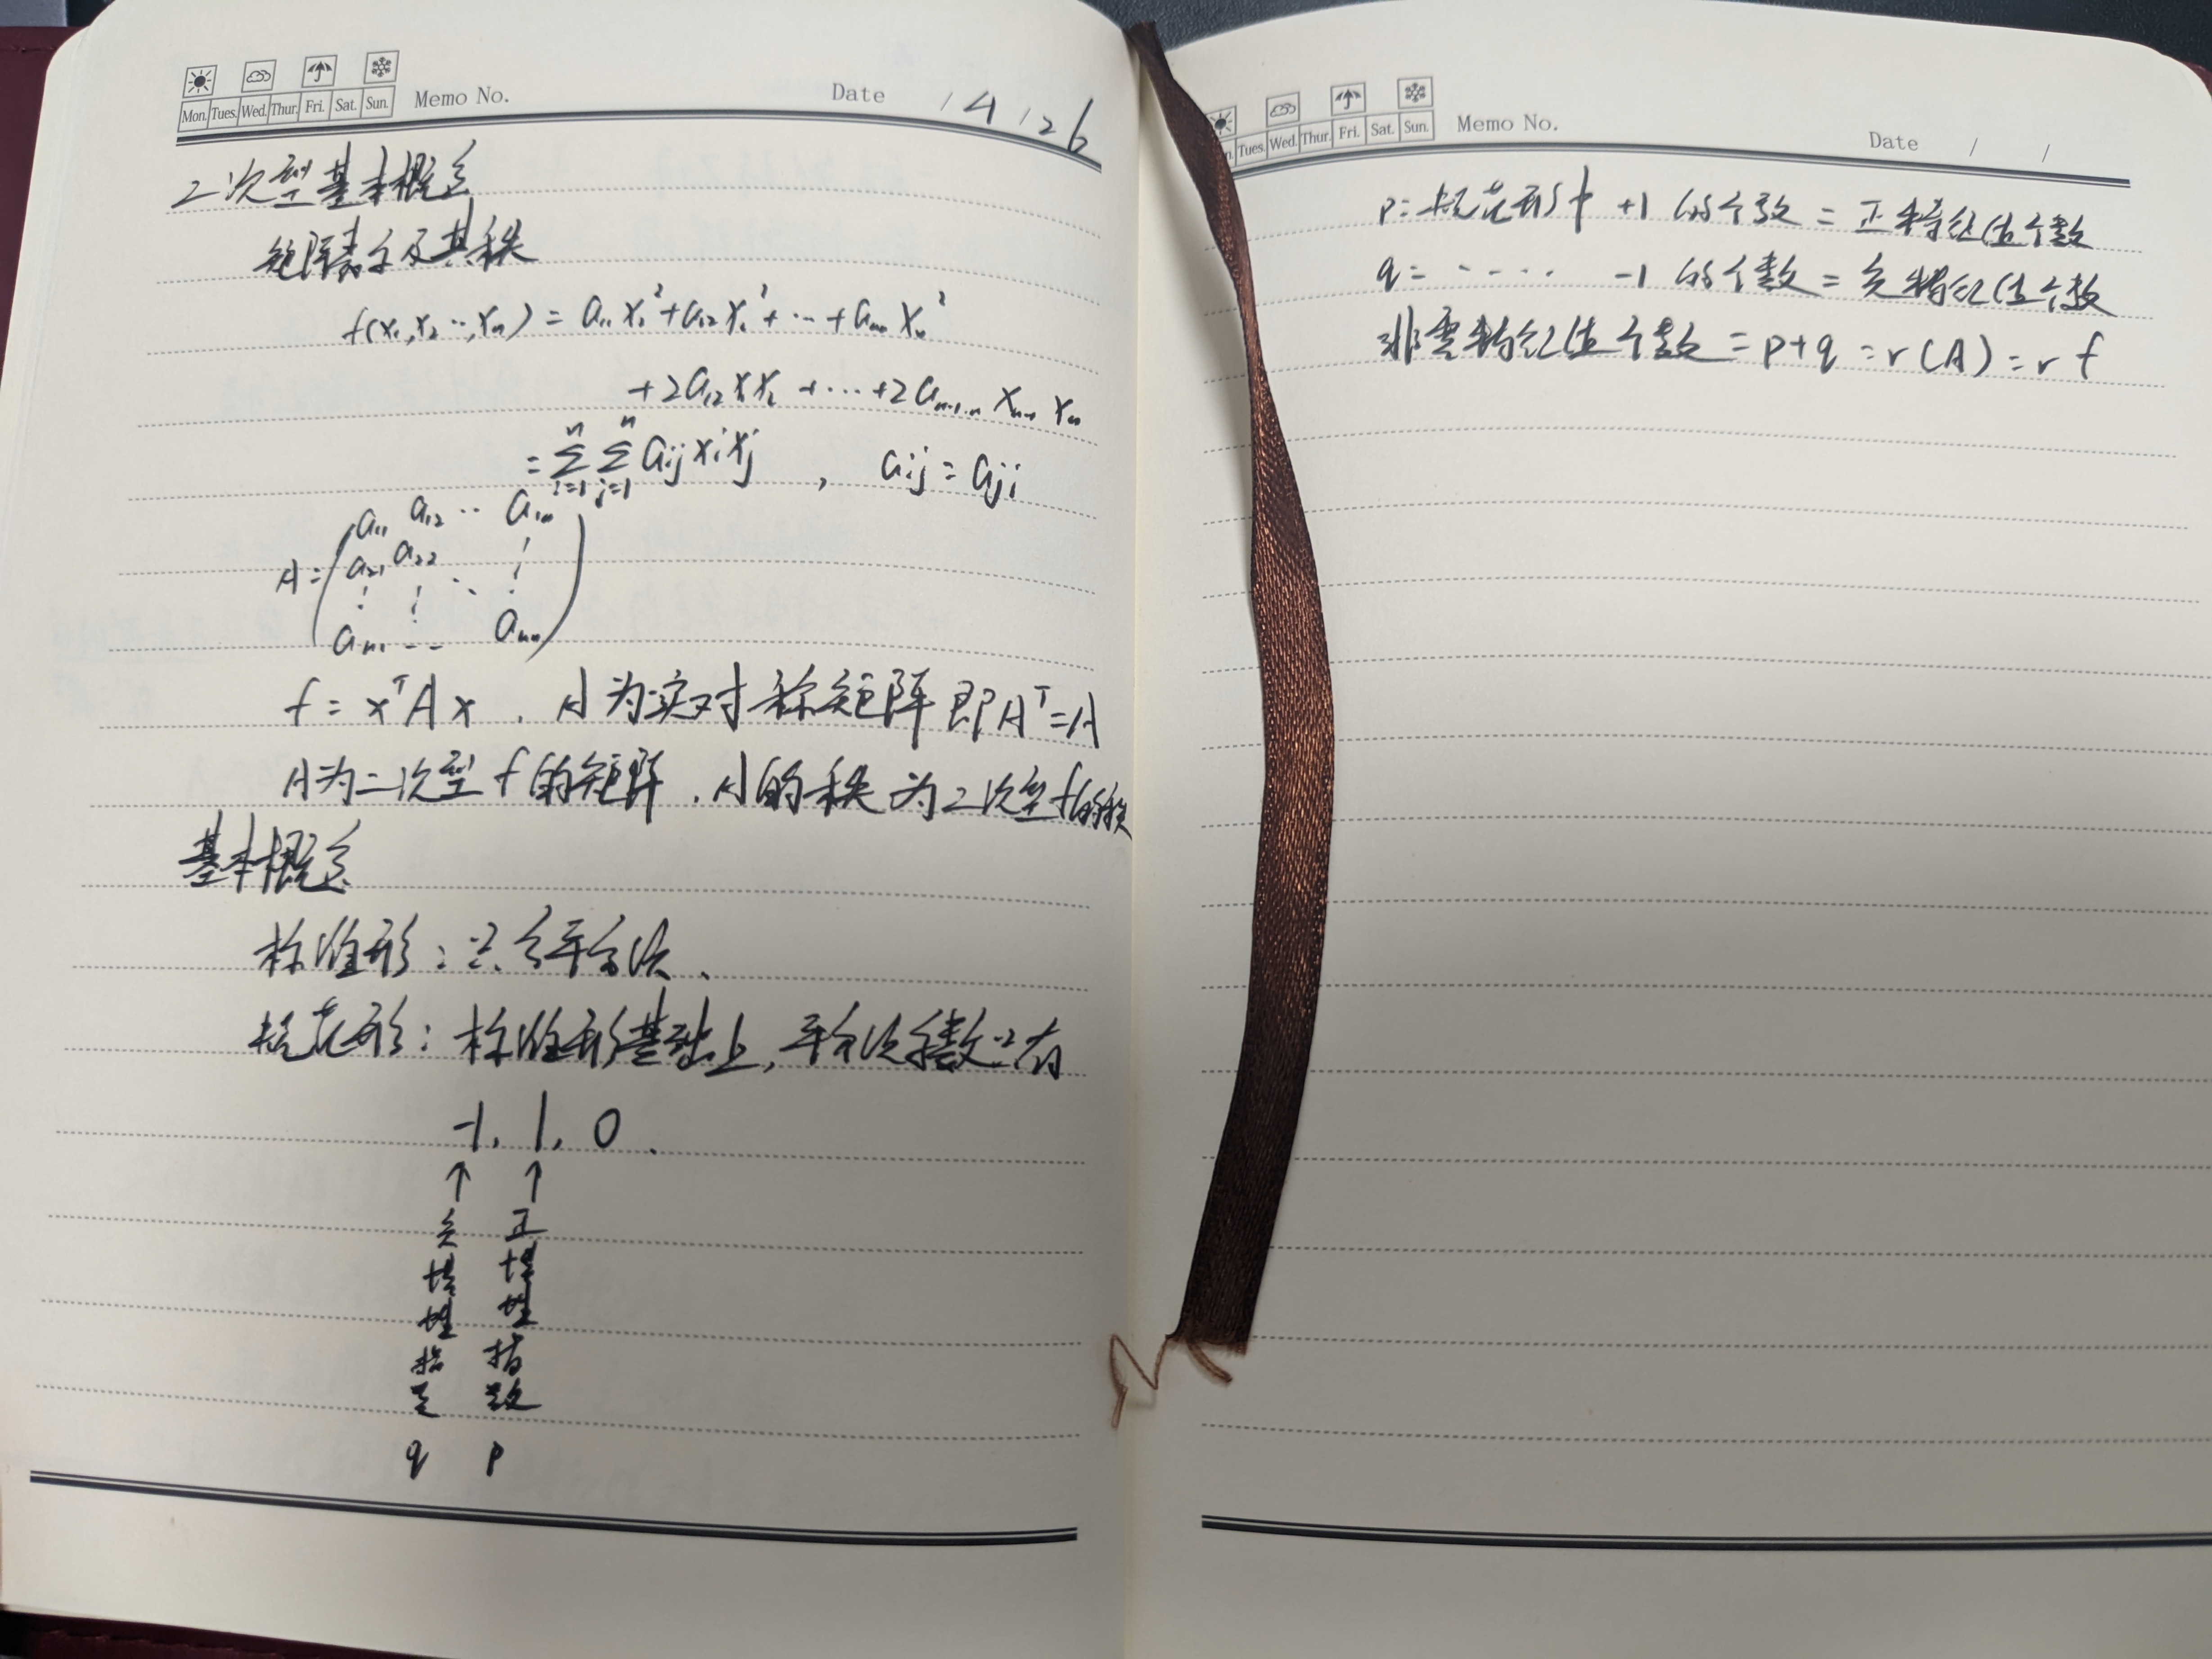 Mon. Tues. Wed. Thur. Fri. Sat. Sun. Memo No. Date / 4 / 26
二次型基本概念
矩阵表示及其秩
f(x₁,x₂…,xₙ) = a₁₁x₁² + a₁₂x₂² + … + aₙₙxₙ²
+ 2a₁₂x₁x₂ + … + 2aₙ₋₁.ₙ xₙ₋₁ xₙ
= Σⁿᵢ₌₁ Σⁿⱼ₌₁ aij xi xj , aij = aji
a₁₁ a₁₂ ‥ a₁ₙ
A = a₂₁ a₂₂
⋮ ⋮ ⋱ ⋮
aₙ₁ … aₙₙ
f = xᵀAx , A为实对称矩阵即Aᵀ=A
A为二次型f的矩阵,A的秩为二次型f的秩
基本概念
标准形:只含平方项.
规范形:标准形基础上,平方项系数只有
-1, 1, 0.
↑ ↑
负惯性指数 正惯性指数
q p
Tues. Wed. Thur. Fri. Sat. Sun. Memo No. Date / /
p: 规范形中 +1 的个数 = 正特征值个数
q = ‥‥‥ -1 的个数 = 负特征值个数
非零特征值个数 = p+q = r(A) = r f